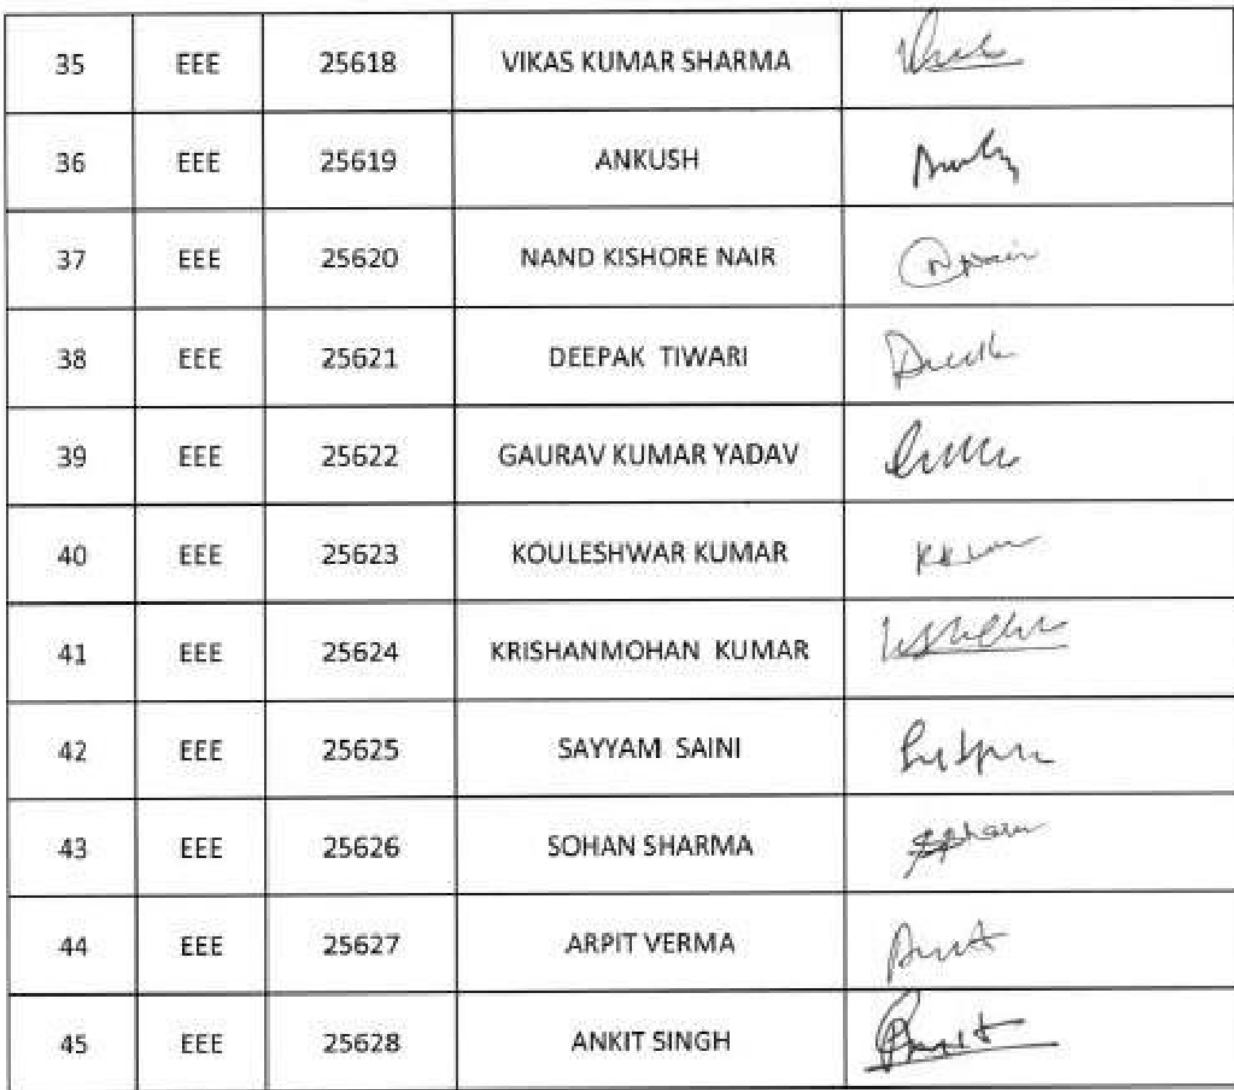 35 EEE 25618 VIKAS KUMAR SHARMA
36 EEE 25619 ANKUSH
37 EEE 25620 NAND KISHORE NAIR
38 EEE 25621 DEEPAK TIWARI
39 EEE 25622 GAURAV KUMAR YADAV
40 EEE 25623 KOULESHWAR KUMAR
41 EEE 25624 KRISHANMOHAN KUMAR
42 EEE 25625 SAYYAM SAINI
43 EEE 25626 SOHAN SHARMA
44 EEE 25627 ARPIT VERMA
45 EEE 25628 ANKIT SINGH